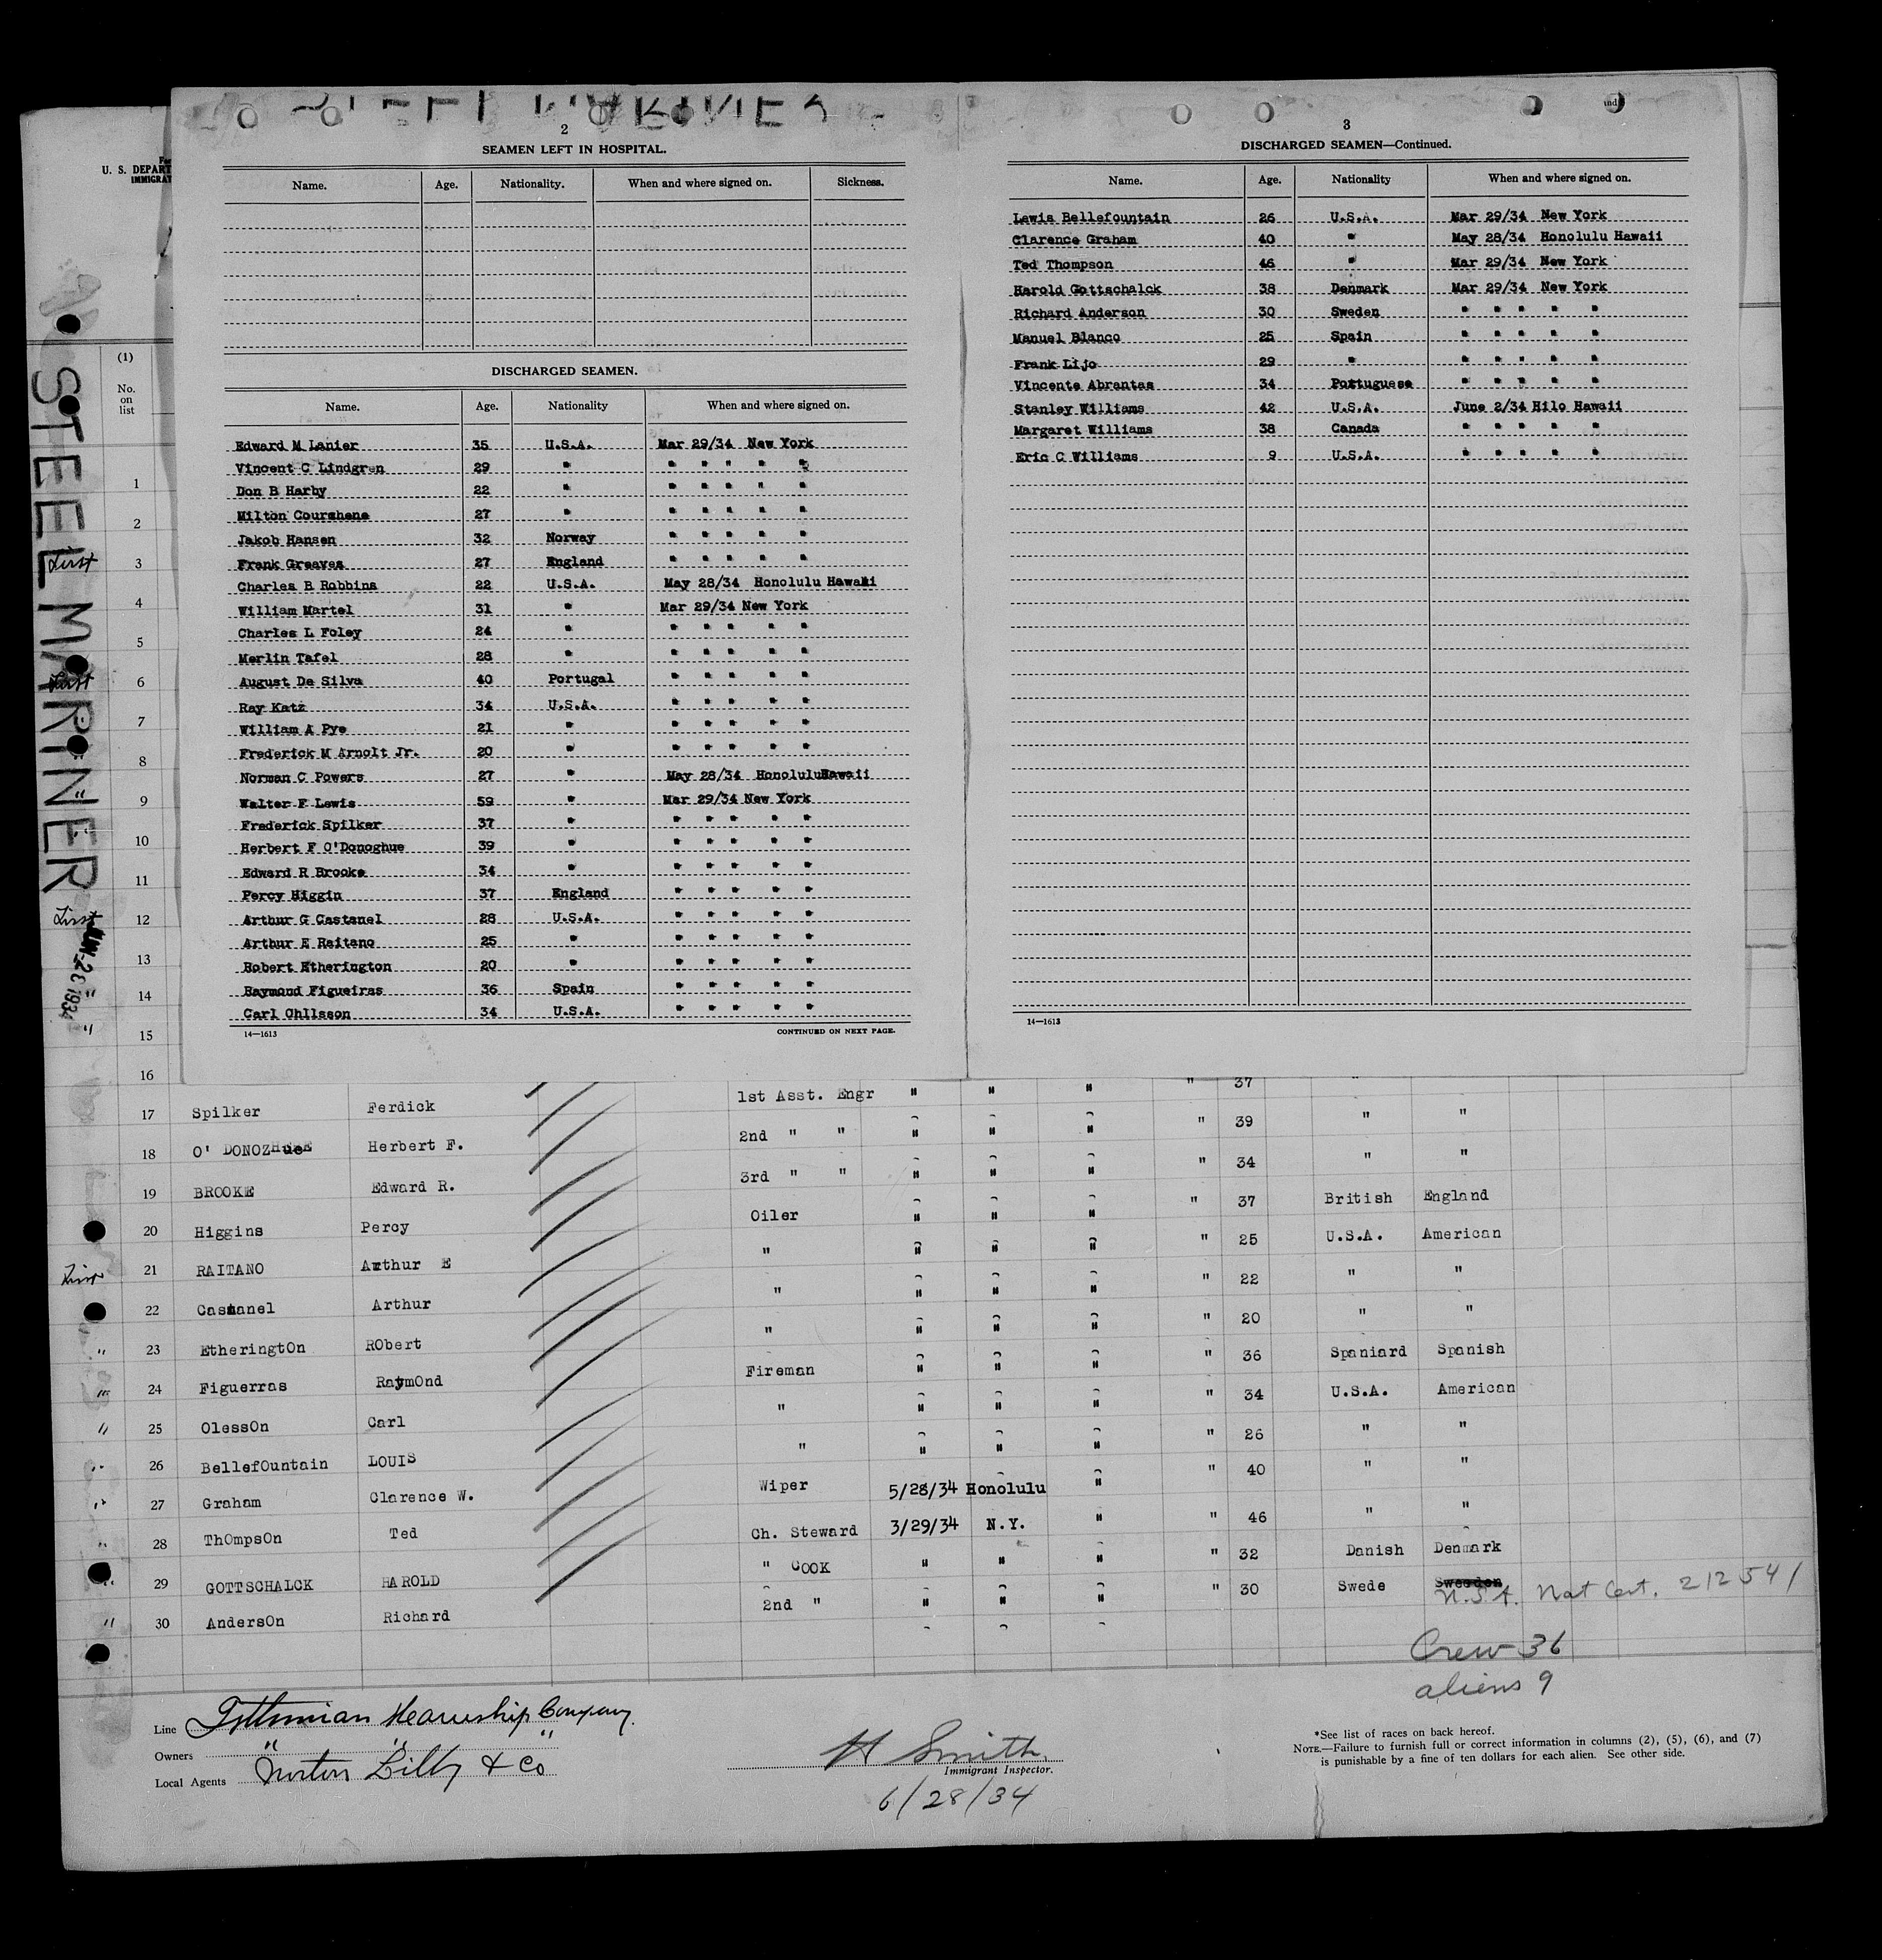 2
SEAMEN LEFT IN HOSPITAL.
Name. Age. Nationality. When and where signed on. Sickness.
DISCHARGED SEAMEN.
Name. Age. Nationality When and where signed on.
Edward M Lanier 35 U.S.A. Mar 29/34 New York
Vincent C Lindgren 29 " " " " " "
Don B Harby 22 " " " " " "
Milton Courshene 27 " " " " " "
Jakob Hansen 32 Norway " " " " "
Frank Greaves 27 England " " " " "
Charles B Robbins 22 U.S.A. May 28/34 Honolulu Hawaii
William Martel 31 " Mar 29/34 New York
Charles L Foley 24 " " " " " "
Merlin Tafel 28 " " " " " "
August De Silva 40 Portugal " " " " "
Ray Katz 34 U.S.A. " " " " "
William A Pye 21 " " " " " "
Frederick M Arnolt Jr. 20 " " " " " "
Norman C Powers 27 " May 28/34 HonoluluHawaii
Walter F Lewis 59 " Mar 29/34 New York
Frederick Spilker 37 " " " " " "
Herbert F O'Donoghue 39 " " " " " "
Edward R Brooke 34 " " " " " "
Percy Higgin 37 England " " " " "
Arthur G Castanel 28 U.S.A. " " " " "
Arthur E Raitano 25 " " " " " "
Robert Etherington 20 " " " " " "
Raymond Figueiras 36 Spain " " " " "
Carl Ohllsson 34 U.S.A. " " " " "
14—1613 CONTINUED ON NEXT PAGE.
3
DISCHARGED SEAMEN—Continued.
Name. Age. Nationality When and where signed on.
Lewis Bellefountain 26 U.S.A. Mar 29/34 New York
Clarence Graham 40 " May 28/34 Honolulu Hawaii
Ted Thompson 46 " Mar 29/34 New York
Harold Gottschalck 38 Denmark Mar 29/34 New York
Richard Anderson 30 Sweden " " " " "
Manuel Blanco 25 Spain " " " " "
Frank Lijo 29 " " " " " "
Vincente Abrantas 34 Portuguese " " " " "
Stanley Williams 42 U.S.A. June 2/34 Hilo Hawaii
Margaret Williams 38 Canada " " " " "
Eric C Williams 9 U.S.A. " " " " "
14—1613
U. S. DEPART
IMMIGRAT
(1)
No.
on
list
STEEL MARINER
1
2
First 3
4
5
6
7
8
9
10
11
First 12
13
14
15
16
17 Spilker Ferdick 1st Asst. Engr " " " " 37 "
18 O' DONOZHUE Herbert F. 2nd " " " " " " 39 " "
19 BROOKE Edward R. 3rd " " " " " " 34 " "
20 Higgins Percy Oiler " " " " 37 British England
First 21 RAITANO Arthur E " " " " " 25 U.S.A. American
22 Castanel Arthur " " " " " 22 " "
" 23 EtheringtOn RObert " " " " " 20 " "
" 24 Figuerras RaymOnd Fireman " " " " 36 Spaniard Spanish
" 25 OlessOn Carl " " " " " 34 U.S.A. American
" 26 BellefOuntain LOUIS " " " " " 26 " "
" 27 Graham Clarence W. Wiper 5/28/34 Honolulu " " 40 " "
" 28 ThOmpsOn Ted Ch. Steward 3/29/34 N.Y. " " 46 " "
" 29 GOTTSCHALCK HAROLD " COOK " " " " 32 Danish Denmark
" 30 AndersOn Richard 2nd " " " " " 30 Swede Sweeden
U.S.A. Nat Cert. 212541
Crew 36
aliens 9
Line Isthmian Steamship Company.
Owners " " "
Local Agents Norton Lilly & Co
H Smith
Immigrant Inspector.
6/28/34
*See list of races on back hereof.
NOTE.—Failure to furnish full or correct information in columns (2), (5), (6), and (7)
is punishable by a fine of ten dollars for each alien. See other side.